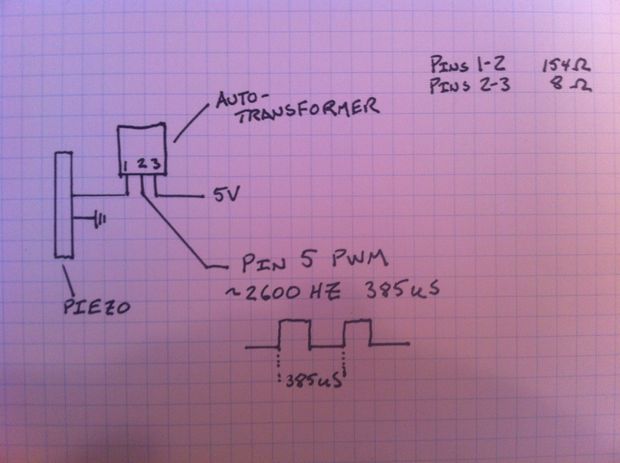 PINS 1-2 154Ω
PINS 2-3 8Ω
AUTO-
TRANSFORMER
1 2 3
5V
PIN 5 PWM
~2600 HZ 385uS
PIEZO
385uS